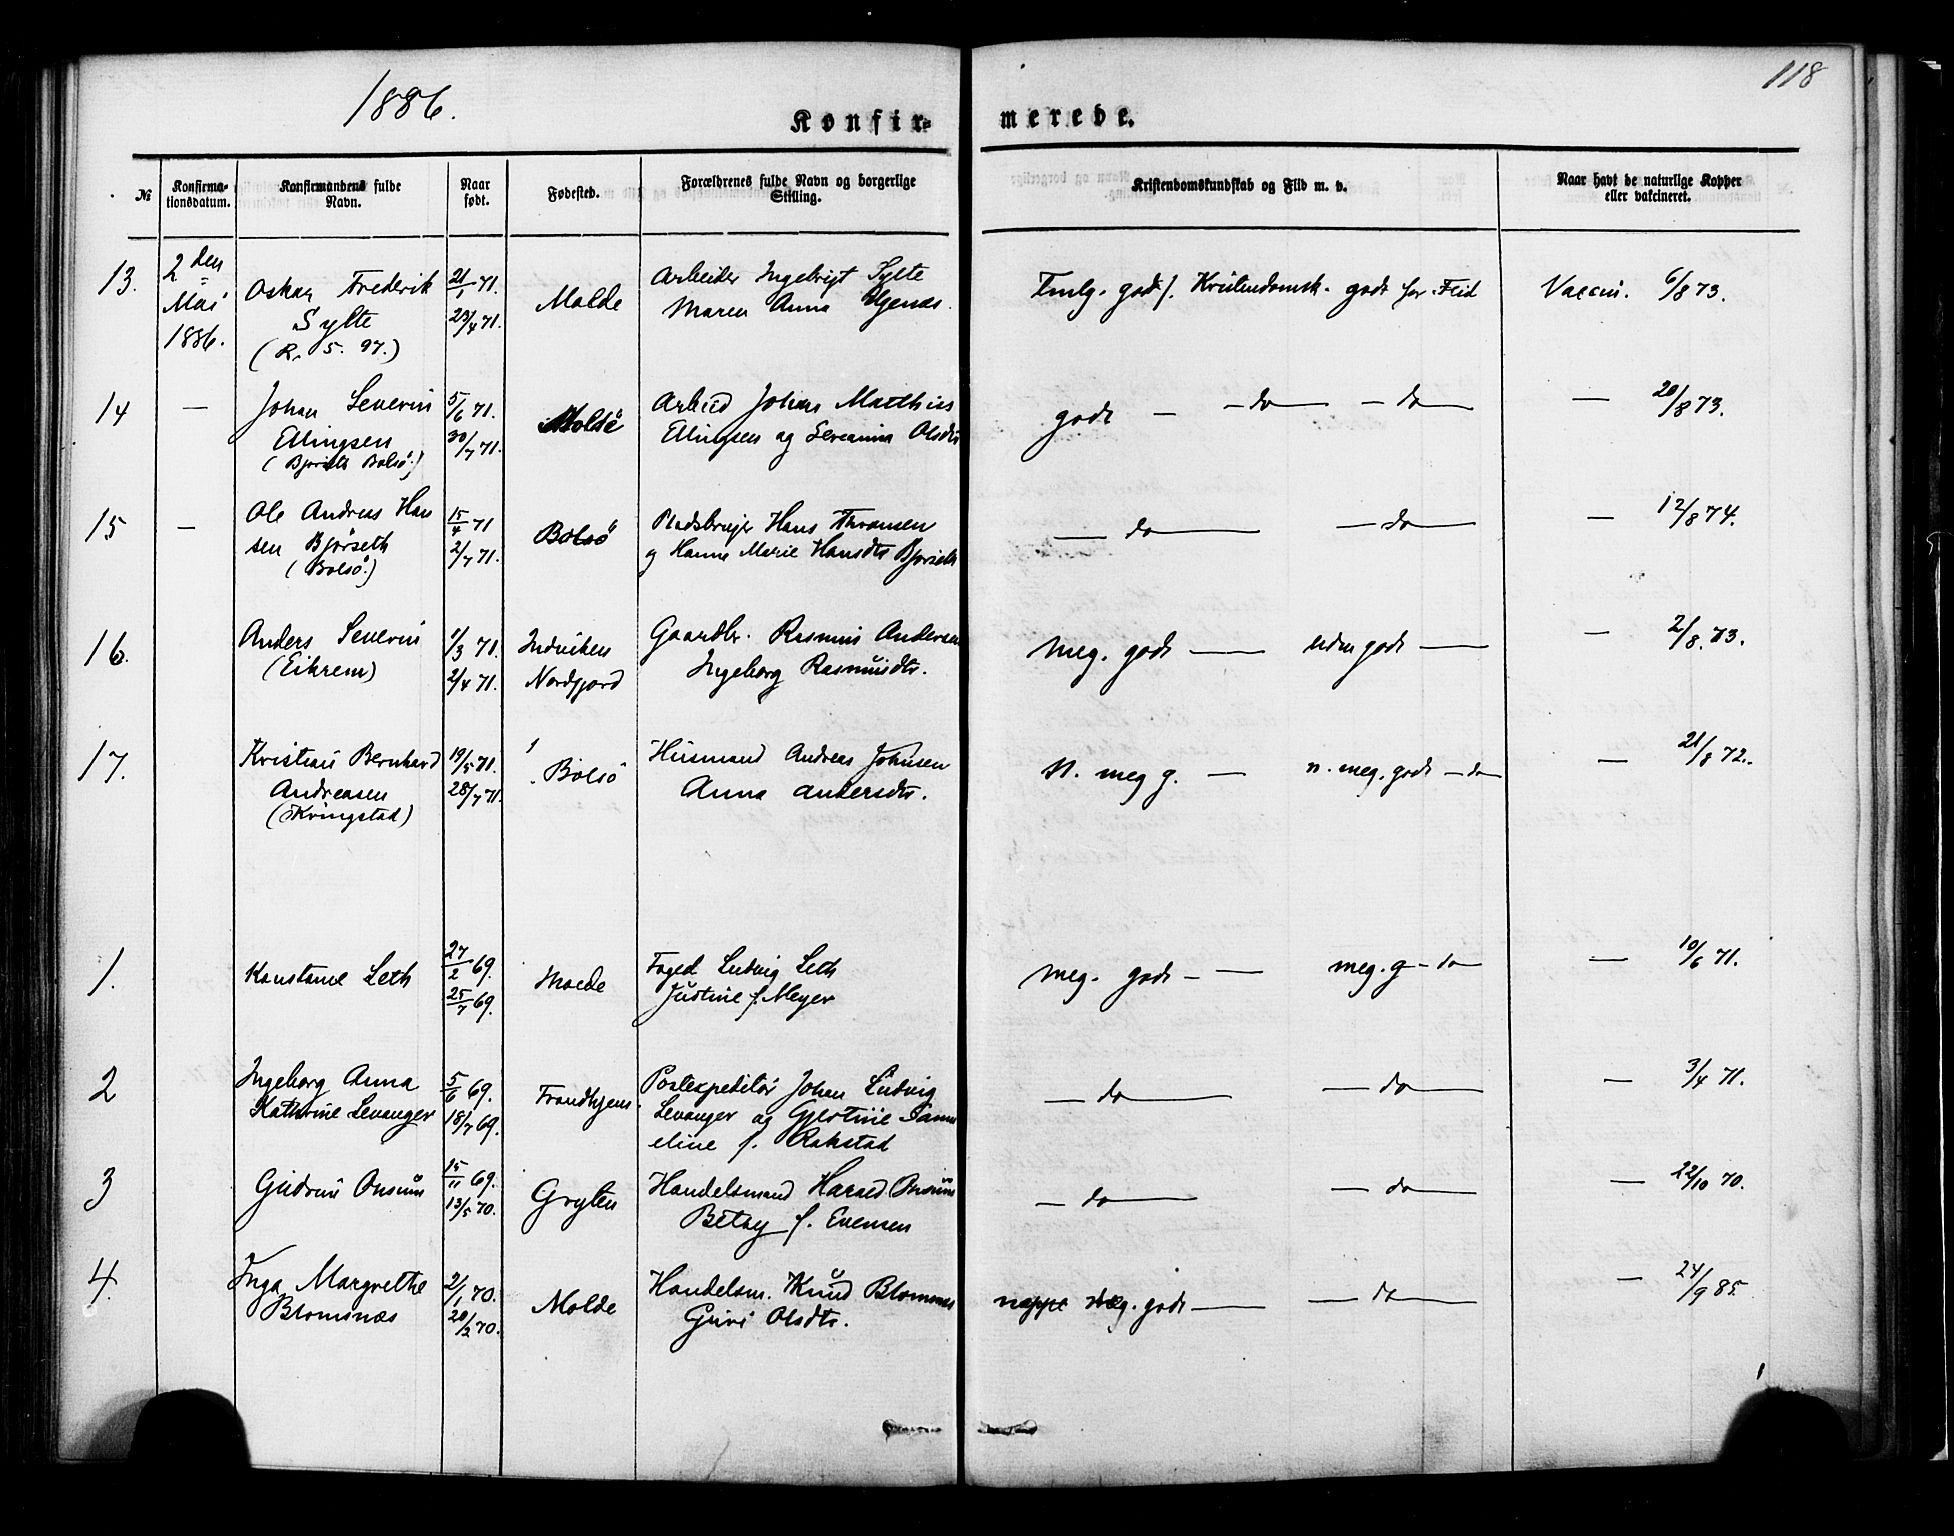 1886.
118
Konfir-
merede.
№
Konfirma-
tionsdatum.
Konfirmandens fulde
Navn.
Naar
født.
Fødested.
Forældrenes fulde Navn og borgerlige
Stilling.
Kristendomskundskab og Flid m. v.
Naar havt de naturlige Kopper
eller vakcineret.
13. 2den Mai 1886. Oskar Frederik 21/1 71. Molde Arbeider Ingebrigt Sylte Temlg. godt. Kristendomsk. godt for Flid Vaccin. 6/8 73.
Sylte 23/4 71. Maren Anna
(R. 5. 97.)
14 — Johan Severin 5/6 71. Molde Arbeid Johan Matthias godt — — do — — do — — 20/8 73.
Ellingsen 30/7 71. Ellingsen og Olsdtr
( Bolsö.)
15 — Ole Andreas Han 15/4 71 Bolsö Pladsbruger Hans — do — — do — — 12/8 74.
sen Bjørseth 2/7 71. og Hanna Marie Hansdtr Bjørseth
(Bolsö.)
16. Anders Severin 1/3 71. Indviken Gaardbr. Rasmus Andersen meg. godt — godt — — 2/8. 73.
(Eikrem) 2/4 71. Nordfjord Ingeborg Rasmusdtr.
17. Kristian Bernhard 19/5 71. Bolsö Husmand Andreas Johnsen N. meg g. — n. meg. godt — do — 21/8 72.
Andreasen 28/7 71. Anna Andersdtr.
(Kringstad)
1. Konstanse Leth 27/2 69. Molde Foged Ludvig Leth meg. godt — — meg. g — do — 10/6 71.
25/7 69. Justine f. Meyer
2 Ingeborg Anna 5/6 69. Trondhjem Postexpeditör Johan Ludvig — do — — do — — 3/4 71.
Kathrine Levanger 18/7 69. Levanger og Gjertine Sam
eline f. Rokstad
3 Gudrun Onsum 15/11 69. Gryten Handelsmand Harald Onsum — do — — do — — 22/10 70.
13/5 70. Betzy f. Evensen
4. Inga Margrethe 2/1 70. Molde Handelsm. Knud Blomsnes neppe meg. godt — — do — — 24/9 85.
Blomsnæs 20/2 70. Guri Olsdtr.